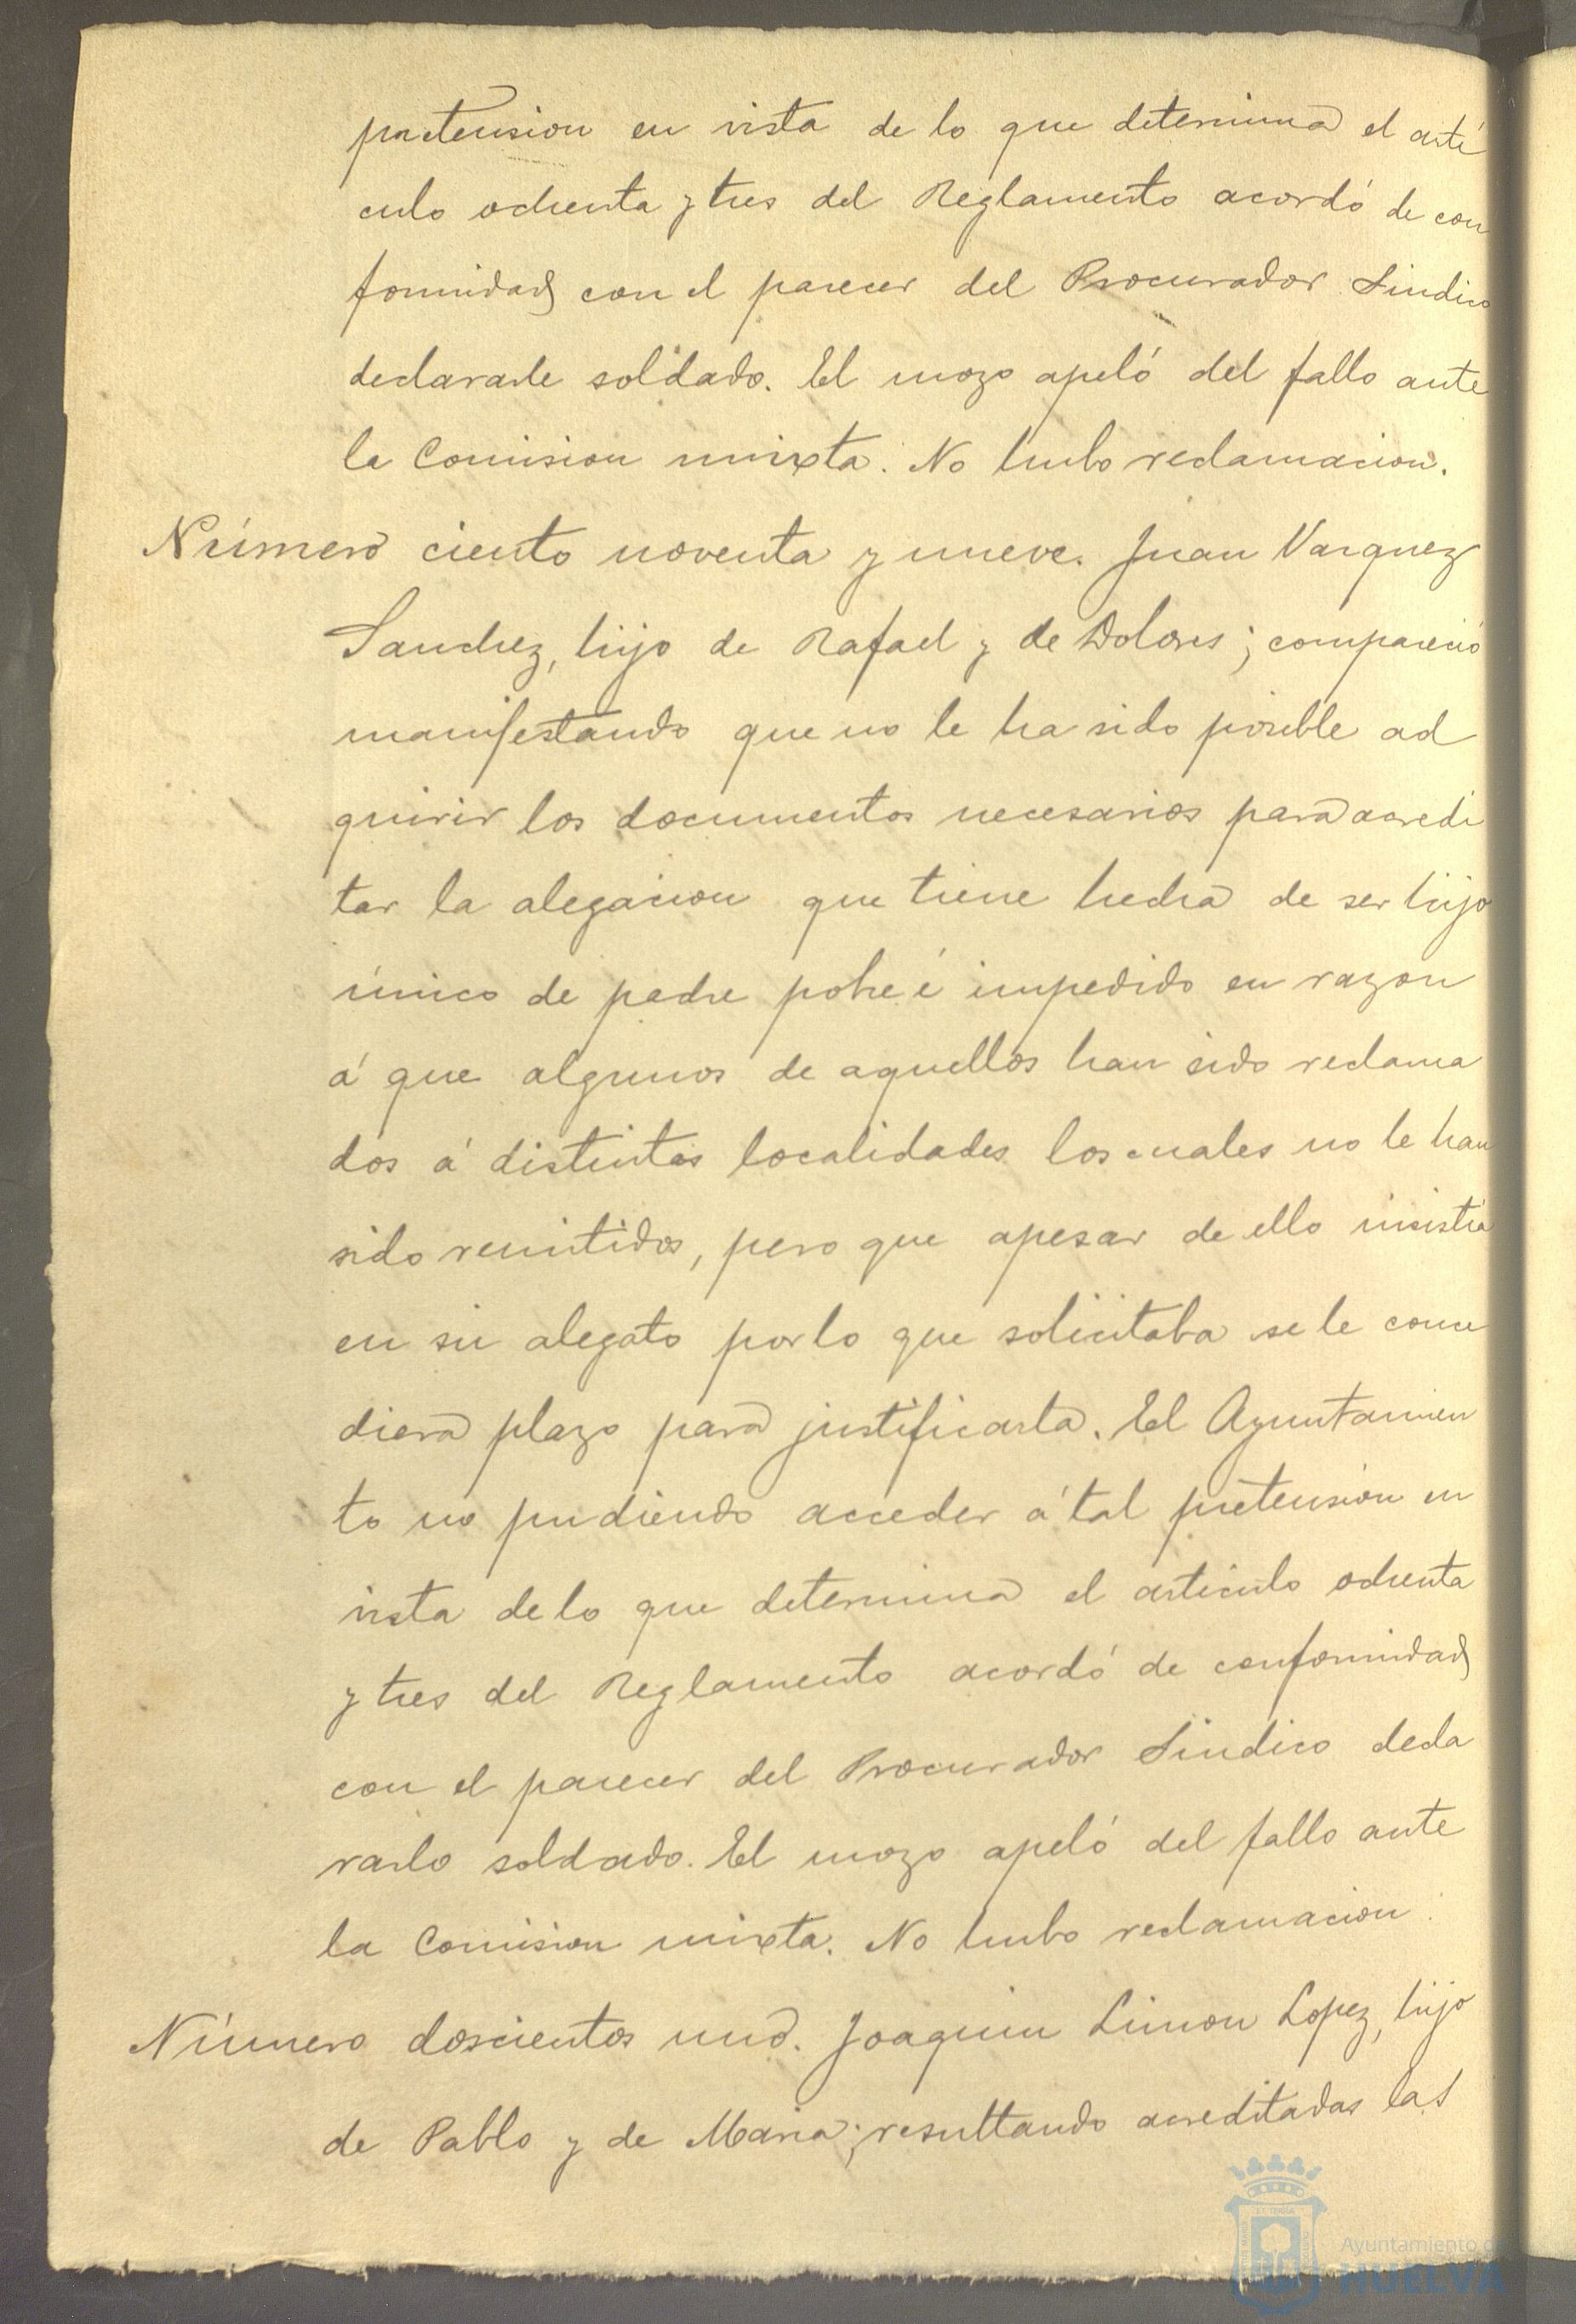 pretension en vista de lo que determina el artí
culo ochenta y tres del Reglamento acordó de con
formidad con el parecer del Procurador Sindico
declararle soldado. El mozo apeló del fallo ante
la Comision mixta. No hubo reclamacion.
Número ciento noventa y nueve. Juan Vazquez
Sanchez, hijo de Rafael y de Dolores; compareció
manifestando que no le ha sido posible ad
quirir los documentos necesarios para acredi
tar la alegacion que tiene hecha de ser hijo
único de padre pobre é impedido en razon
á que algunos de aquellos han sido reclama
dos á distintas localidades los cuales no le han
sido remitidos, pero que apesar de ello insistia
en su alegato por lo que solicitaba se le conce
diera plazo para justificarla. El Ayuntamien
to no pudiendo acceder á tal pretension en
vista de lo que determina el articulo ochenta
y tres del Reglamento acordó de conformidad
con el parecer del Procurador Sindico decla
rarlo soldado. El mozo apeló del fallo ante
la Comision mixta. No hubo reclamacion.
Número doscientos uno. Joaquin Limon Lopez, hijo
de Pablo y de Maria; resultando acreditadas las
Ayuntamiento de
HUELVA